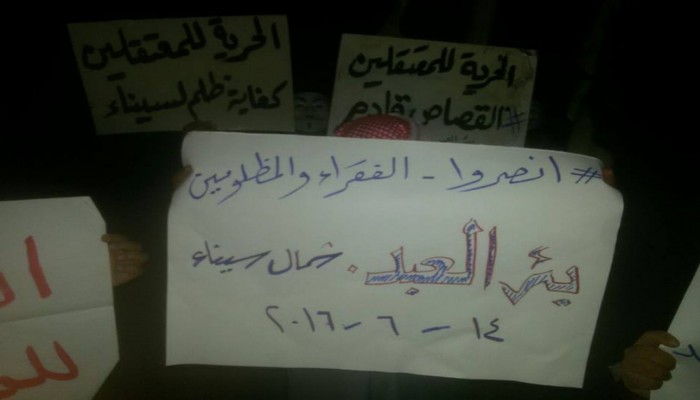 الحرية للمعتقلين
كفاية ظلم لسيناء
الحرية للمعتقلين
#القصاص قادم
#انصروا - الفقراء والمظلومين
بئر العبد . شمال سيناء
١٤ - ٦ - ٢٠١٦